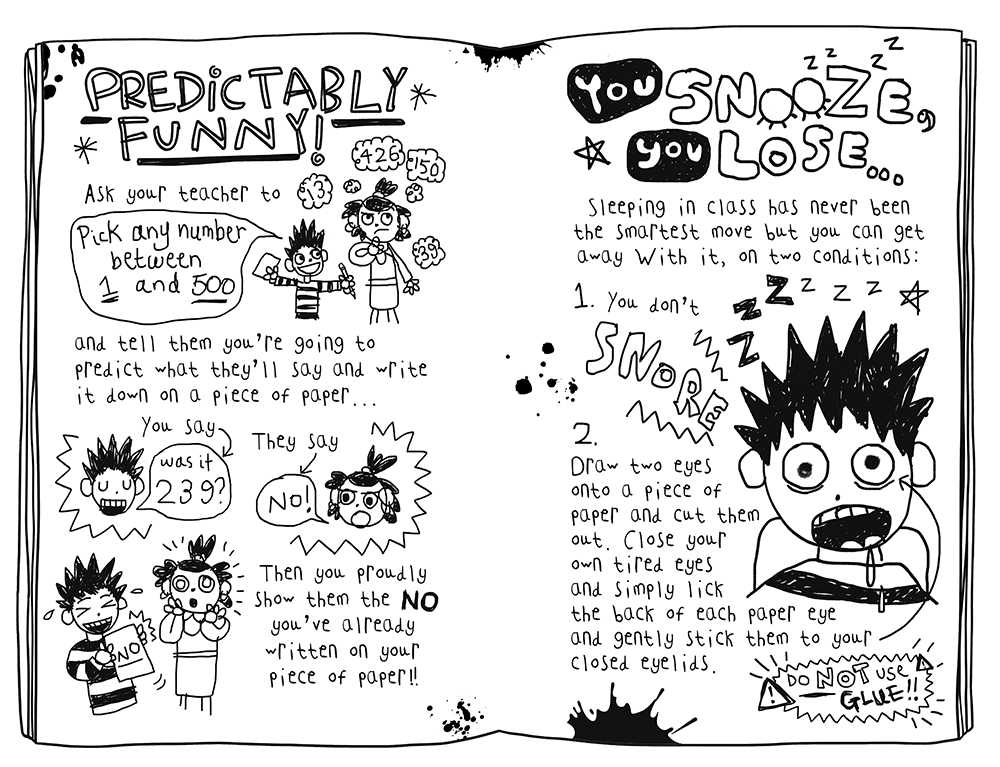 PREDICTABLY
FUNNY!
Ask your teacher to
Pick any number
between
1 and 500
3
426
150
39
and tell them you're going to
predict what they'll say and write
it down on a piece of paper...
You say
was it
239?
They say
NO!
NO
Then you proudly
show them the NO
you've already
written on your
piece of paper!!
You SNOOZE,
z z z z
you LOSE...
Sleeping in class has never been
the smartest move but you can get
away With it, on two conditions:
1. You don't
SNORRRR
z z z z z z
2.
Draw two eyes
onto a piece of
paper and cut them
out. Close your
own tired eyes
and simply lick
the back of each paper eye
and gently stick them to your
closed eyelids.
! DO NOT USE !
GLUE!!